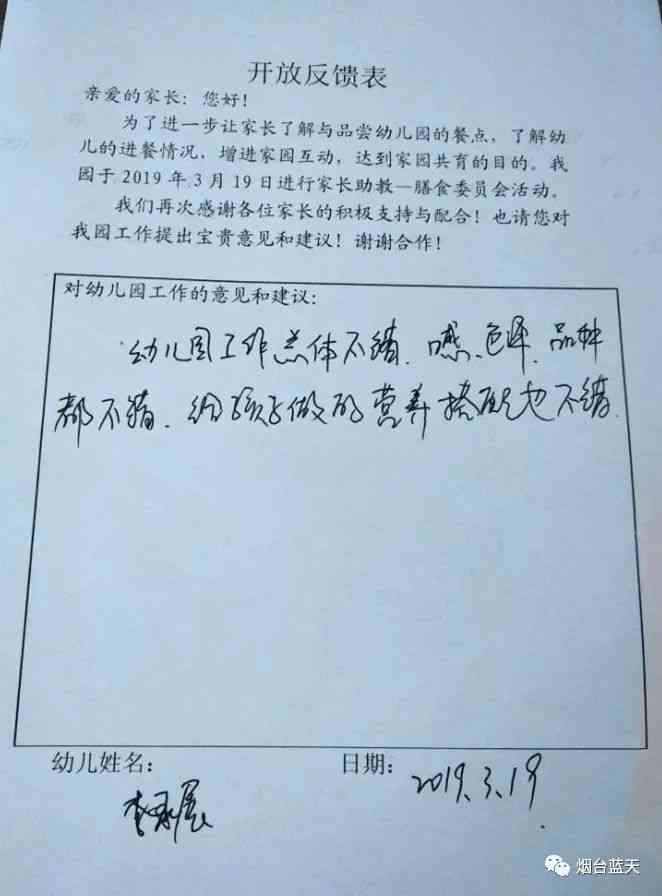 开放反馈表
亲爱的家长：您好！
为了进一步让家长了解与品尝幼儿园的餐点，了解幼
儿的进餐情况，增进家园互动，达到家园共育的目的。我
园于2019年3月19日进行家长助教—膳食委员会活动。
我们再次感谢各位家长的积极支持与配合！也请您对
我园工作提出宝贵意见和建议！谢谢合作！
对幼儿园工作的意见和建议：
幼儿园工作总体不错、口感、色泽、品种
都不错、给孩子做的营养搭配也不错.
幼儿姓名：
日期：
李承展
2019.3.19
烟台蓝天